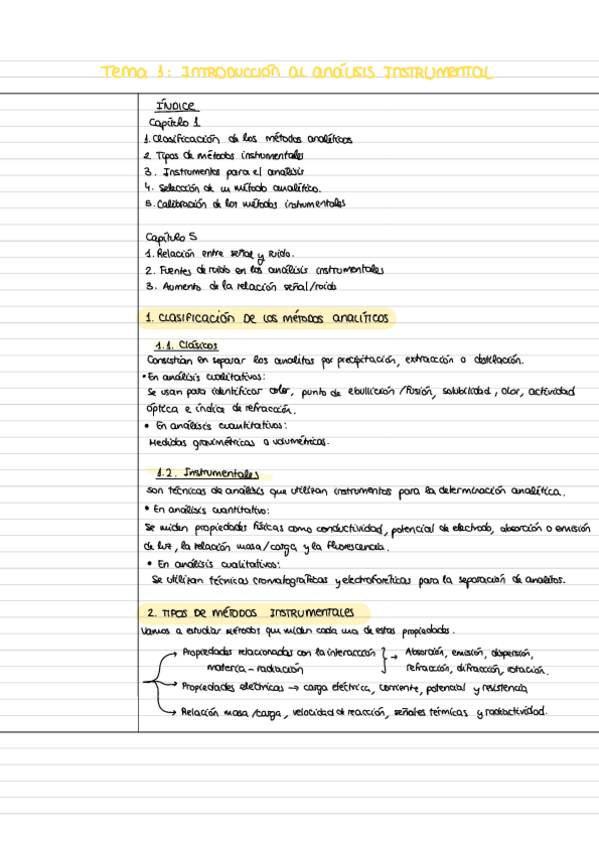 Tema 1: INTRODUCCIÓN AL ANÁLISIS INSTRUMENTAL
ÍNDICE
Capítulo 1
1. Clasificación de los métodos analíticos
2. Tipos de métodos instrumentales
3. Instrumentos para el análisis
4. Selección de un método analítico.
5. Calibración de los métodos instrumentales
Capítulo 5
1. Relación entre señal y ruido.
2. Fuentes de ruido en los análisis instrumentales
3. Aumento de la relación señal/ruido
1. CLASIFICACIÓN DE LOS MÉTODOS ANALÍTICOS
1.1. Clásicos
Consistían en separar los analitos por precipitación, extracción o destilación.
• En análisis cualitativos:
Se usan para identificar color, punto de ebullición/fusión, solubilidad, olor, actividad
óptica e índice de refracción.
• En análisis cuantitativos:
Medidas gravimétricas o volumétricas.
1.2. Instrumentales
Son técnicas de análisis que utilizan instrumentos para la determinación analítica.
• En análisis cuantitativo:
Se miden propiedades físicas como conductividad, potencial de electrodo, absorción o emisión
de luz, la relación masa/carga y la fluorescencia.
• En análisis cualitativos:
Se utilizan técnicas cromatográficas y electroforéticas para la separación de analitos.
2. TIPOS DE MÉTODOS INSTRUMENTALES
Vamos a estudiar métodos que miden cada una de estas propiedades.
→ Propiedades relacionadas con la interacción } → Absorción, emisión, dispersión,
materia - radiación refracción, difracción, rotación.
→ Propiedades eléctricas → carga eléctrica, corriente, potencial y resistencia
→ Relación masa/carga, velocidad de reacción, señales térmicas y radiactividad.